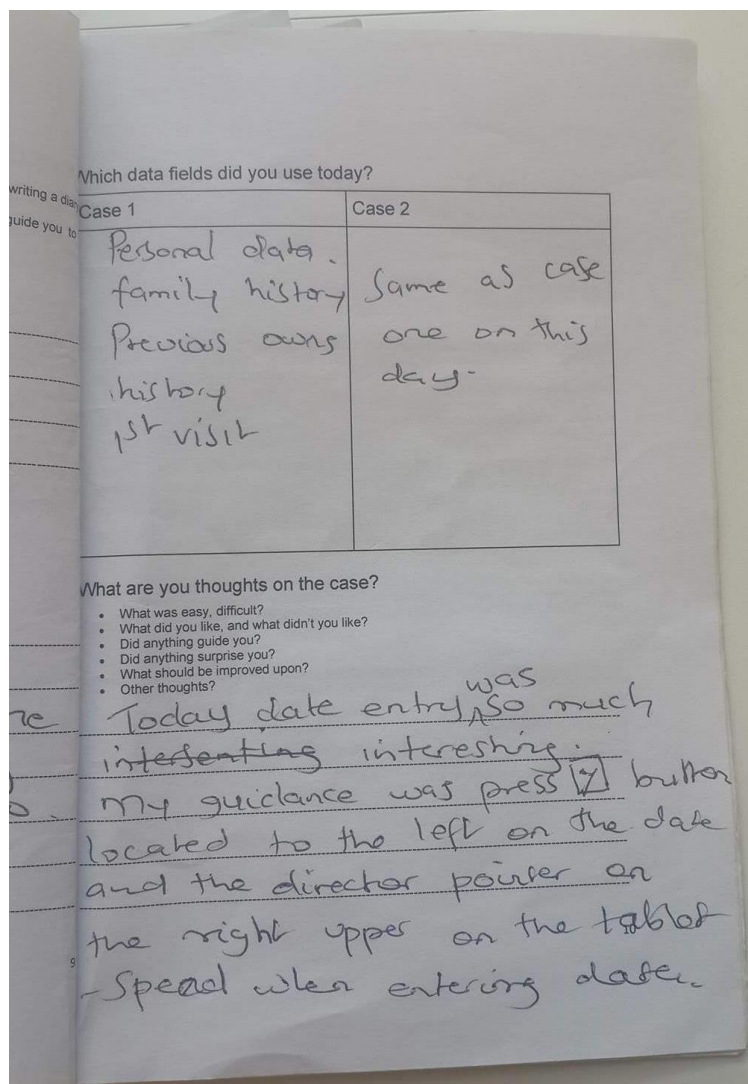 writing a diar
guide you to
Which data fields did you use today?
Case 1
Personal data.
family history
Previous owns
history
1st visit
Case 2
Same as case
one on this
day.
What are you thoughts on the case?
• What was easy, difficult?
• What did you like, and what didn't you like?
• Did anything guide you?
• Did anything surprise you?
• What should be improved upon?
• Other thoughts?
Today date entry was so much
interesting.
My guidance was press button
located to the left on the date
and the director pointer on
the right upper on the tablet
- Spead when entering date.
9